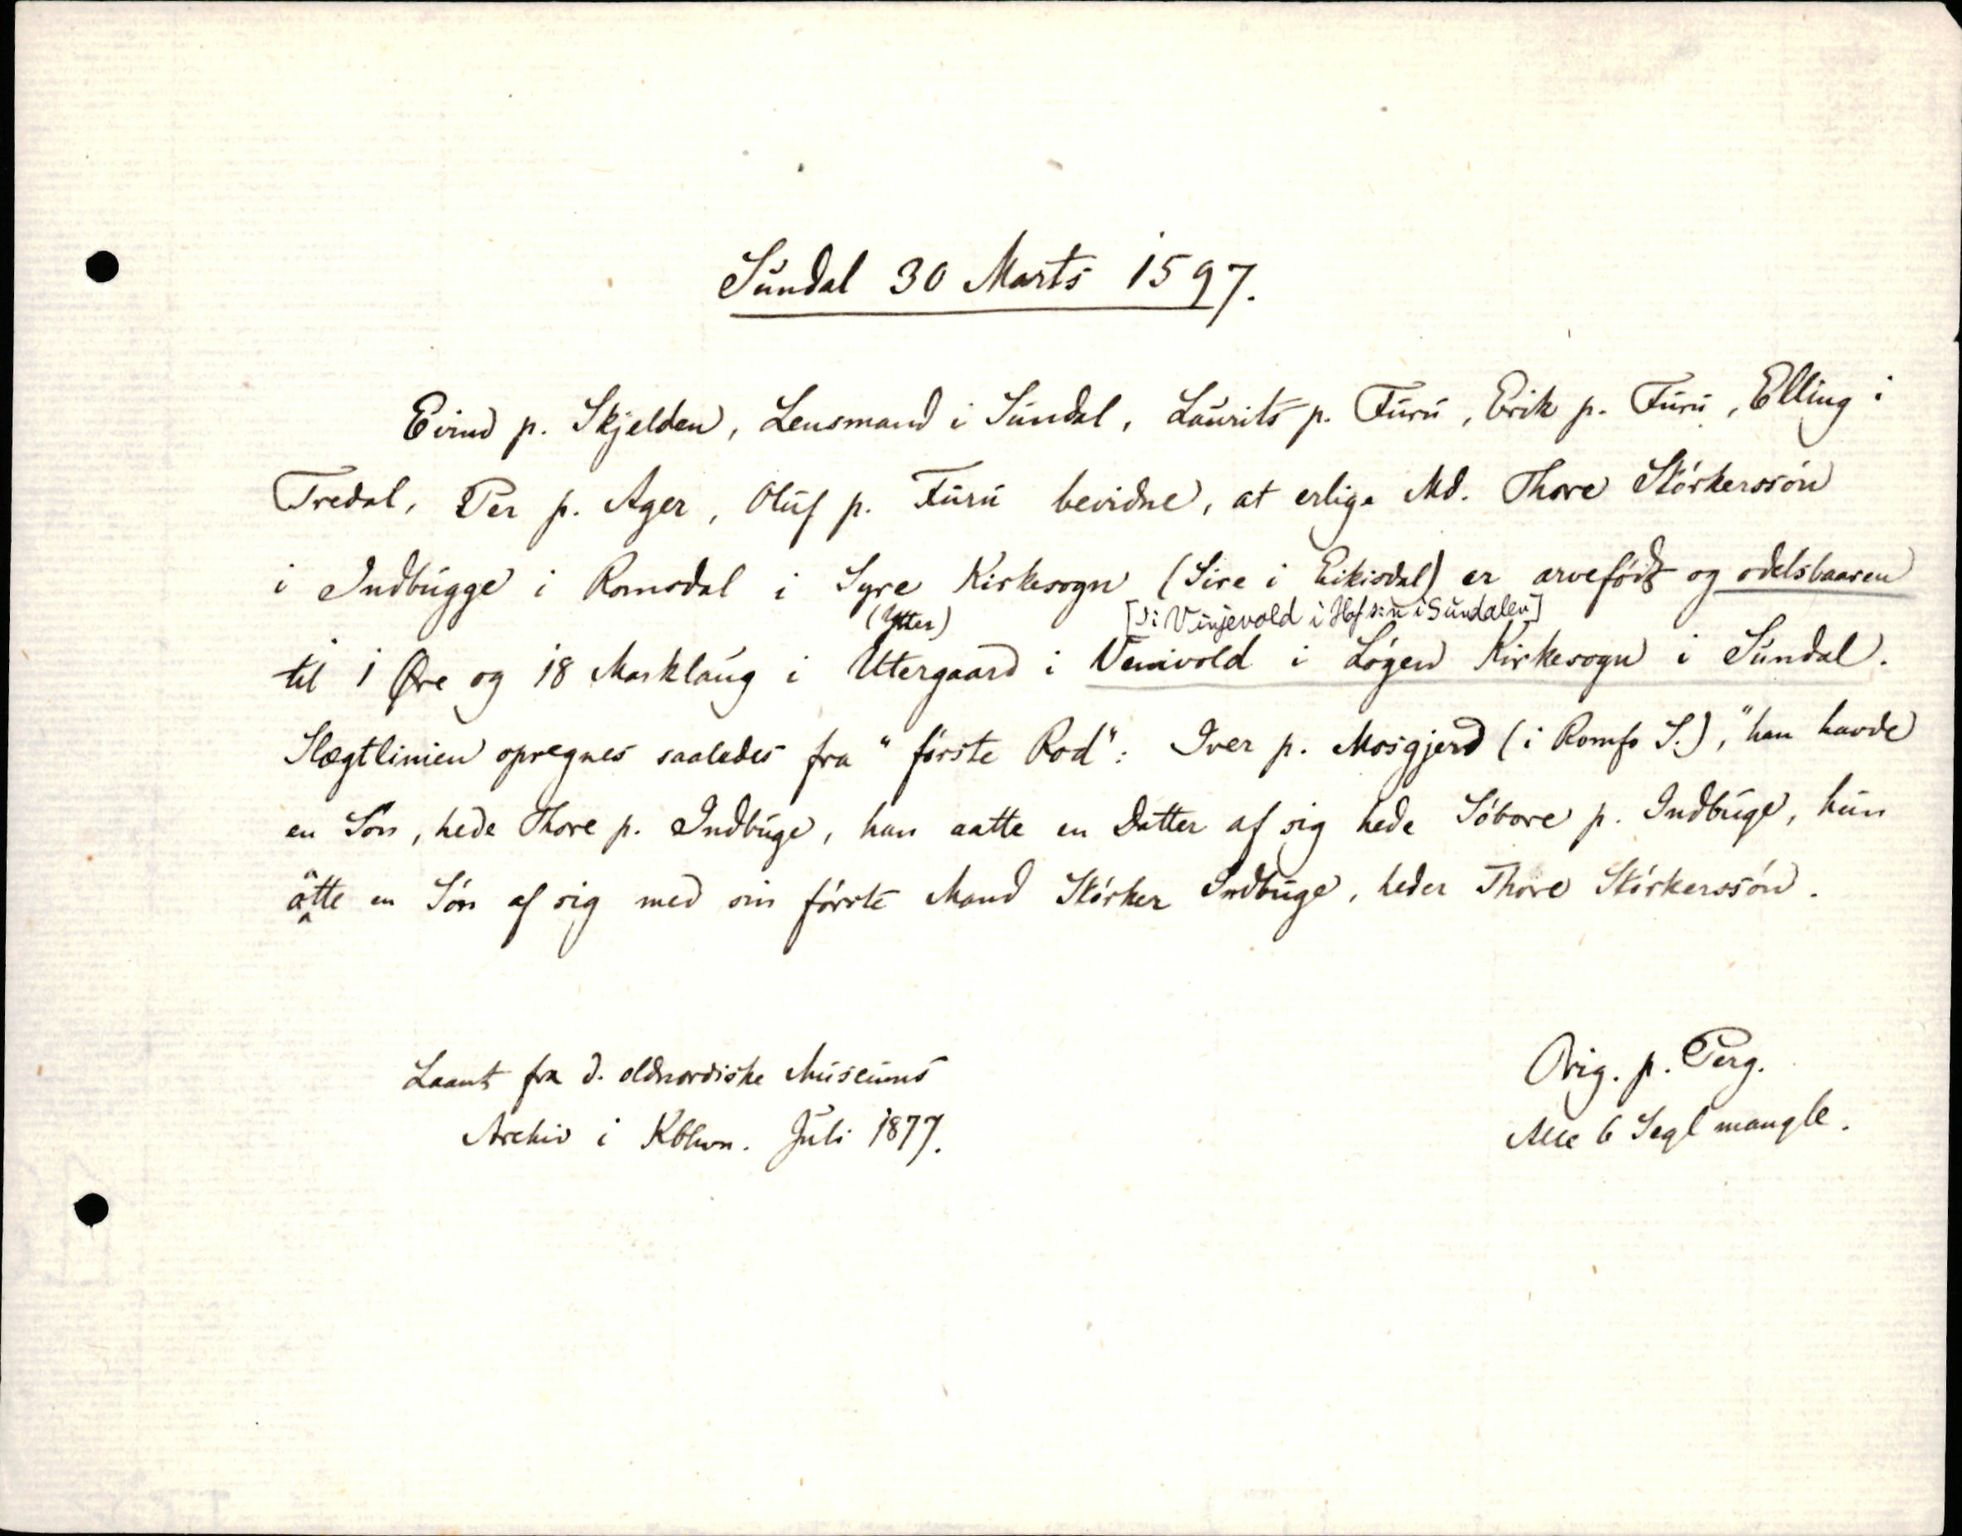 Sundal 30 Marts 1597.
Eivind p. Skjelden, Lensmand i Sundal, Laurits p. Furu, Erik p. Furu, Elling i
Tredal, Per p. Ager, Oluf p. Furu bevidne, at erlige Md. Thore Størkerssøn
i Indbugge i Romsdal i Syre Kirkesogn (Sire i Eikisdal) er arvefødt og odelsbaaren
(Ytter) [ɔ: Vinjevold i Hof s:n i Sundalen]
til 1 Øre og 18 Marklaug i Utergaard i Venivold i Løgen Kirkesogn i Sundal.
Slægtlinien opregnes saaledes fra "første Rod": Iver p. Mosgjerd (i Romfo S.), "han havde
en Søn, hede Thore p. Indbuge, han aatte en Datter af sig hede Søbore p. Indbuge, hun
åtte en Søn af sig med sin første Mand Størker Indbuge, heder Thore Størkerssøn.
Laant fra d. oldnordiske Museums
Archiv i Kbhvn. Juli 1877.
Orig. p. Perg.
Alle 6 Segl mangle.